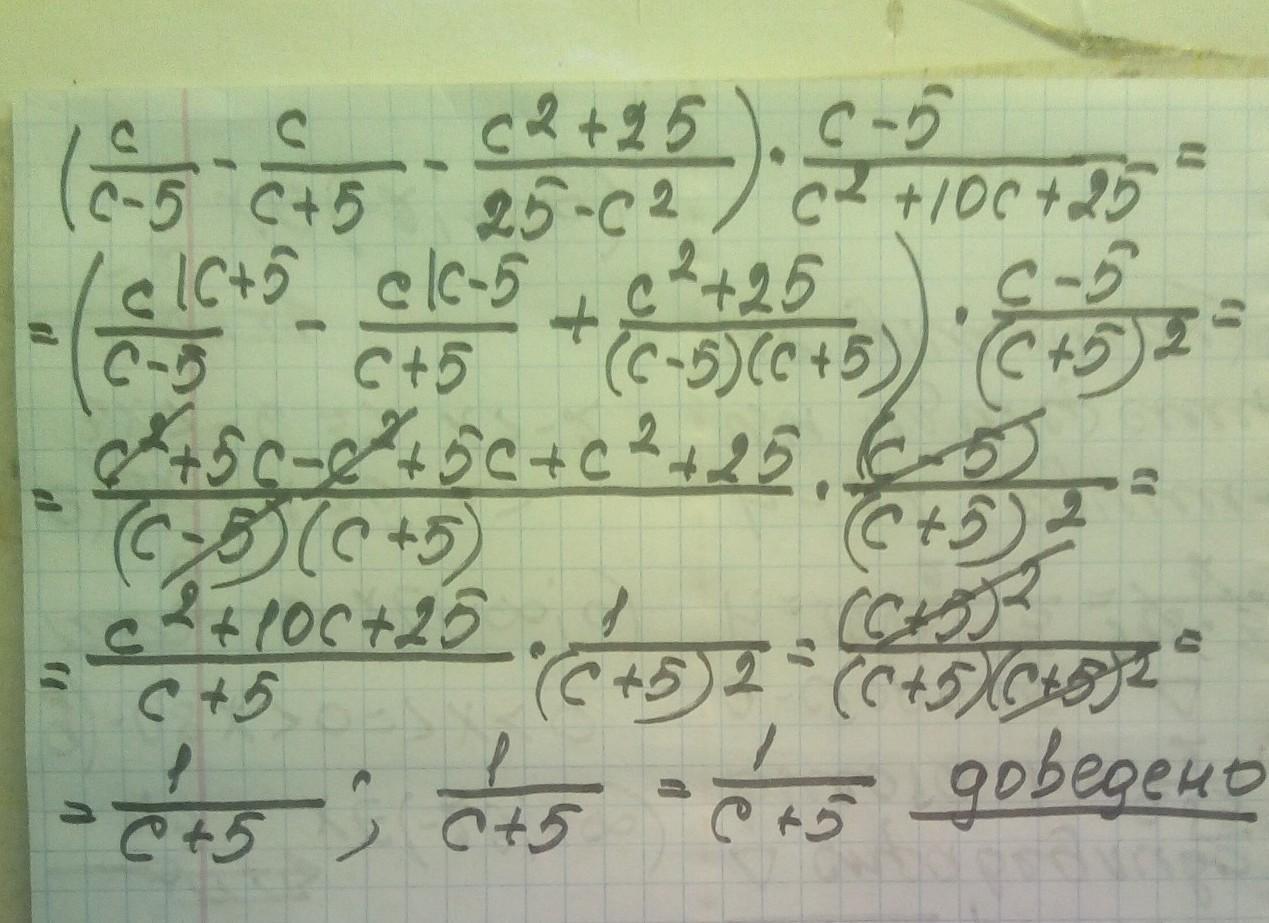 (c/(c-5) - c/(c+5) - (c²+25)/(25-c²)) · (c-5)/(c²+10c+25) =
= (c|c+5/(c-5) - c|c-5/(c+5) + (c²+25)/((c-5)(c+5))) · (c-5)/(c+5)² =
= (c²+5c-c²+5c+c²+25)/((c-5)(c+5)) · (c-5)/(c+5)² =
= (c²+10c+25)/(c+5) · 1/(c+5)² = (c+5)²/((c+5)(c+5)²) =
= 1/(c+5) ; 1/(c+5) = 1/(c+5) доведено